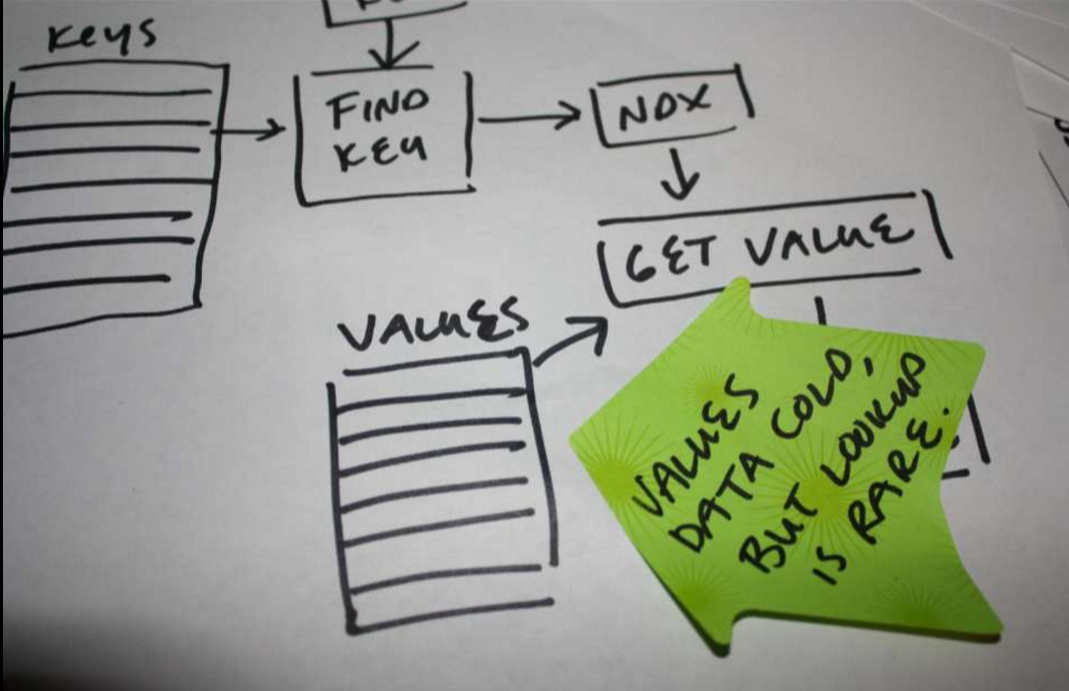 Keys
FIND
KEY
NDX
GET VALUE
VALUES
VALUES
DATA COLD,
BUT LOOKUP
IS RARE.